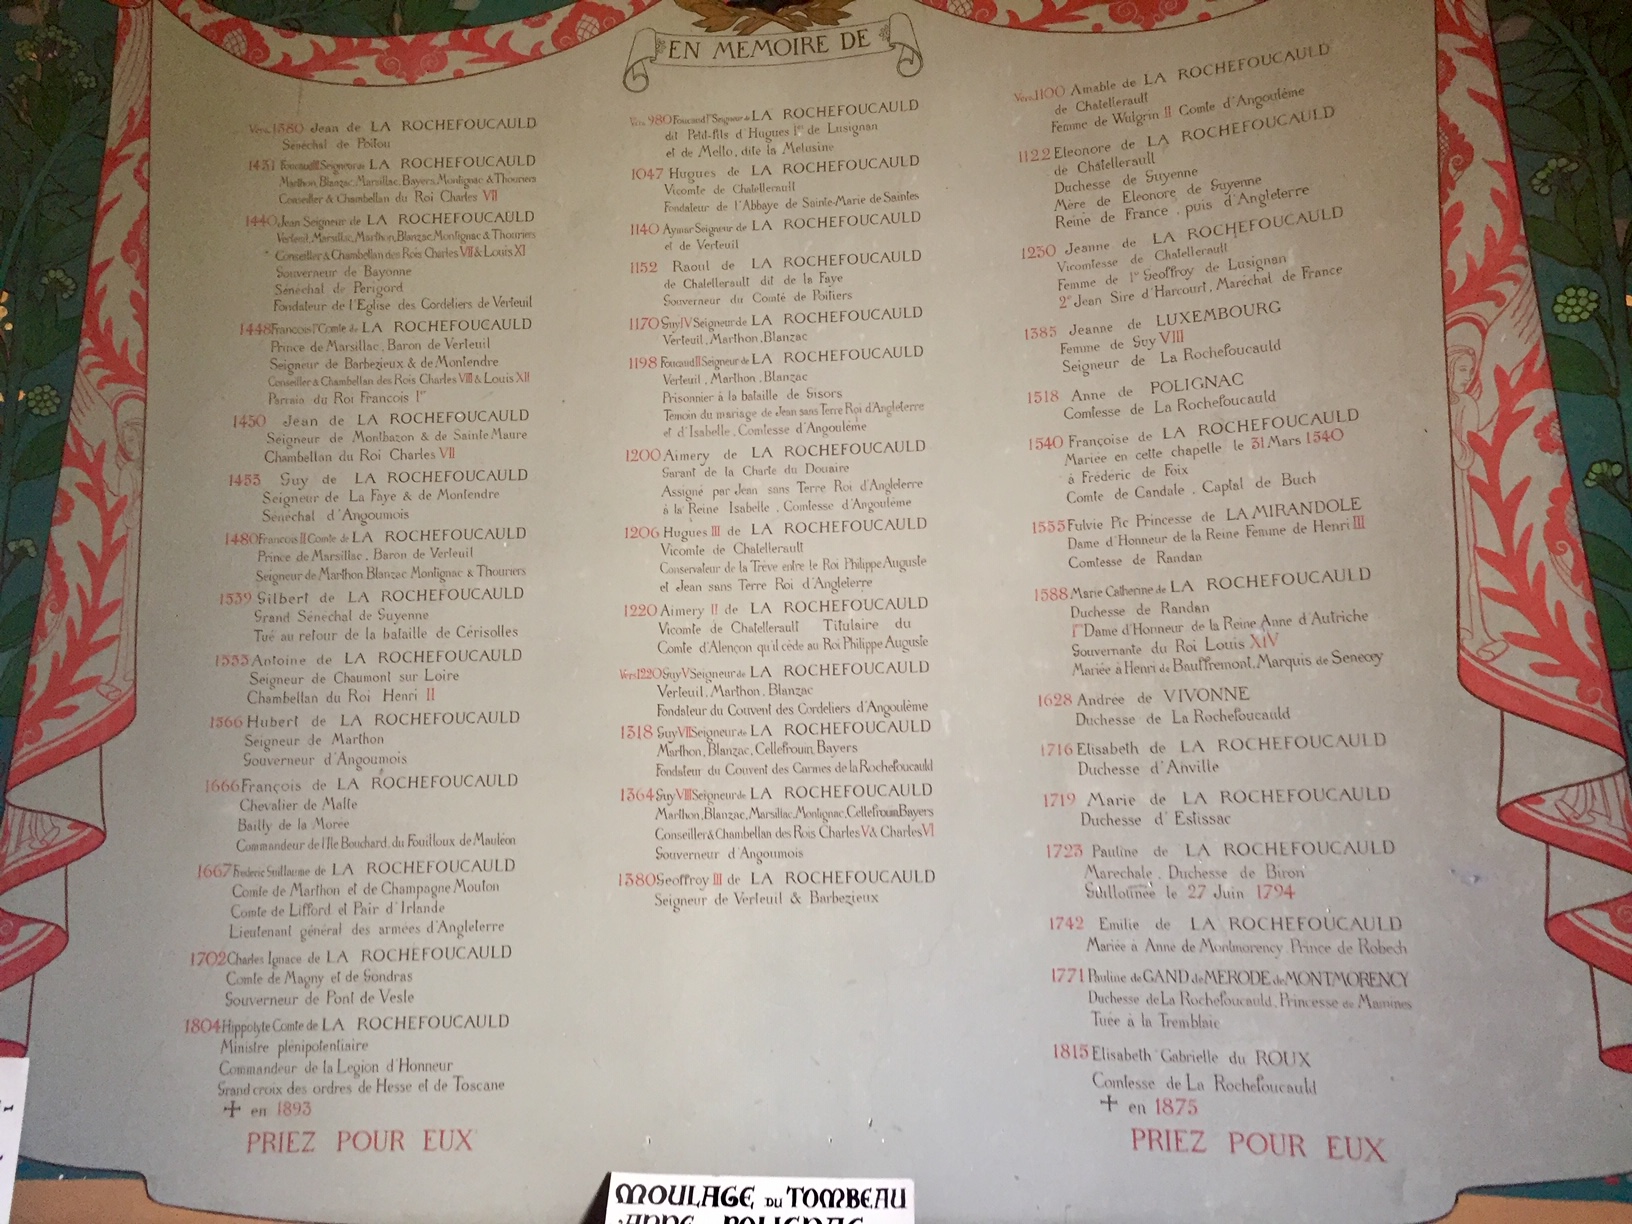 EN MEMOIRE DE
Vers 1380 Jean de LA ROCHEFOUCAULD
Sénéchal de Poitou
1431 Foucauld III Seigneur de LA ROCHEFOUCAULD
Marthon, Blanzac, Marsillac, Bayers, Montignac & Thouriers
Conseiller & Chambellan du Roi Charles VII
1440 Jean Seigneur de LA ROCHEFOUCAULD
Verteuil, Marsillac, Marthon, Blanzac, Montignac & Thouriers
Conseiller & Chambellan des Rois Charles VII & Louis XI
Gouverneur de Bayonne
Sénéchal de Perigord
Fondateur de l'Eglise des Cordeliers de Verteuil
1448 François Ier Comte de LA ROCHEFOUCAULD
Prince de Marsillac, Baron de Verteuil
Seigneur de Barbezieux & de Montendre
Conseiller & Chambellan des Rois Charles VIII & Louis XII
Parrain du Roi François Ier
1450 Jean de LA ROCHEFOUCAULD
Seigneur de Montbazon & de Sainte Maure
Chambellan du Roi Charles VII
1453 Guy de LA ROCHEFOUCAULD
Seigneur de La Faye & de Montendre
Sénéchal d'Angoumois
1480 François II Comte de LA ROCHEFOUCAULD
Prince de Marsillac, Baron de Verteuil
Seigneur de Marthon Blanzac Montignac & Thouriers
1539 Gilbert de LA ROCHEFOUCAULD
Grand Sénéchal de Guyenne
Tué au retour de la bataille de Cérisolles
1533 Antoine de LA ROCHEFOUCAULD
Seigneur de Chaumont sur Loire
Chambellan du Roi Henri II
1566 Hubert de LA ROCHEFOUCAULD
Seigneur de Marthon
Gouverneur d'Angoumois
1666 François de LA ROCHEFOUCAULD
Chevalier de Malte
Bailly de la Morée
Commandeur de l'Ile Bouchard, du Fouilloux de Mauleon
1667 Frederic Guillaume de LA ROCHEFOUCAULD
Comte de Marthon et de Champagne Mouton
Comte de Lifford et Pair d'Irlande
Lieutenant général des armées d'Angleterre
1702 Charles Ignace de LA ROCHEFOUCAULD
Comte de Magny et de Gondras
Gouverneur de Pont de Vesle
1804 Hippolyte Comte de LA ROCHEFOUCAULD
Ministre plénipotentiaire
Commandeur de la Legion d'Honneur
Grand croix des ordres de Hesse et de Toscane
✝ en 1893
PRIEZ POUR EUX
Vers 980 Foucauld Ier Seigneur de LA ROCHEFOUCAULD
dit Petit-fils d'Hugues Ier de Lusignan
et de Mello, dite la Melusine
1047 Hugues de LA ROCHEFOUCAULD
Vicomte de Chatellerault
Fondateur de l'Abbaye de Sainte-Marie de Saintes
1140 Aymar Seigneur de LA ROCHEFOUCAULD
et de Verteuil
1152 Raoul de LA ROCHEFOUCAULD
de Chatellerault dit de la Faye
Gouverneur du Comté de Poitiers
1170 Guy IV Seigneur de LA ROCHEFOUCAULD
Verteuil, Marthon, Blanzac
1198 Foucauld II Seigneur de LA ROCHEFOUCAULD
Verteuil, Marthon, Blanzac
Prisonnier à la bataille de Gisors
Témoin du mariage de Jean sans Terre Roi d'Angleterre
et d'Isabelle, Comtesse d'Angoulême
1200 Aimery de LA ROCHEFOUCAULD
Garant de la Charte du Douaire
Assigné par Jean sans Terre Roi d'Angleterre
à la Reine Isabelle, Comtesse d'Angoulême
1206 Hugues III de LA ROCHEFOUCAULD
Vicomte de Chatellerault
Conservateur de la Trêve entre le Roi Philippe Auguste
et Jean sans Terre Roi d'Angleterre
1220 Aimery II de LA ROCHEFOUCAULD
Vicomte de Chatellerault Titulaire du
Comté d'Alençon qu'il cède au Roi Philippe Auguste
Vers 1220 Guy V Seigneur de LA ROCHEFOUCAULD
Verteuil, Marthon, Blanzac
Fondateur du Couvent des Cordeliers d'Angoulême
1318 Guy VII Seigneur de LA ROCHEFOUCAULD
Marthon, Blanzac, Cellefrouin, Bayers
Fondateur du Couvent des Carmes de la Rochefoucauld
1364 Guy VIII Seigneur de LA ROCHEFOUCAULD
Marthon, Blanzac, Marsillac, Montignac, Cellefrouin Bayers
Conseiller & Chambellan des Rois Charles V & Charles VI
Gouverneur d'Angoumois
1380 Geoffroy III de LA ROCHEFOUCAULD
Seigneur de Verteuil & Barbezieux
Vers 1100 Amable de LA ROCHEFOUCAULD
de Chatellerault
Femme de Wulgrin II Comte d'Angoulême
1122 Eleonore de LA ROCHEFOUCAULD
de Chatellerault
Duchesse de Guyenne
Mère de Eleonore de Guyenne
Reine de France, puis d'Angleterre
1250 Jeanne de LA ROCHEFOUCAULD
Vicomtesse de Chatellerault
Femme de 1er Geoffroy de Lusignan
2e Jean Sire d'Harcourt, Maréchal de France
1385 Jeanne de LUXEMBOURG
Femme de Guy VIII
Seigneur de La Rochefoucauld
1518 Anne de POLIGNAC
Comtesse de La Rochefoucauld
1540 Françoise de LA ROCHEFOUCAULD
Mariée en cette chapelle le 31 Mars 1540
à Frédéric de Foix
Comte de Candale, Captal de Buch
1555 Fulvie Pic Princesse de LA MIRANDOLE
Dame d'Honneur de la Reine Femme de Henri III
Comtesse de Randan
1588 Marie Catherine de LA ROCHEFOUCAULD
Duchesse de Randan
1re Dame d'Honneur de la Reine Anne d'Autriche
Gouvernante du Roi Louis XIV
Mariée à Henri de Bauffremont, Marquis de Senecey
1628 Andrée de VIVONNE
Duchesse de La Rochefoucauld
1716 Elisabeth de LA ROCHEFOUCAULD
Duchesse d'Anville
1719 Marie de LA ROCHEFOUCAULD
Duchesse d'Estissac
1723 Pauline de LA ROCHEFOUCAULD
Marechale, Duchesse de Biron
Guillotinée le 27 Juin 1794
1742 Emilie de LA ROCHEFOUCAULD
Mariée à Anne de Montmorency, Prince de Robech
1771 Pauline de GAND de MERODE de MONTMORENCY
Duchesse de La Rochefoucauld, Princesse de Mamines
Tuée à la Tremblaie
1815 Elisabeth Gabrielle du ROUX
Comtesse de La Rochefoucauld
✝ en 1875
PRIEZ POUR EUX
MOULAGE DU TOMBEAU
POLIGNAC